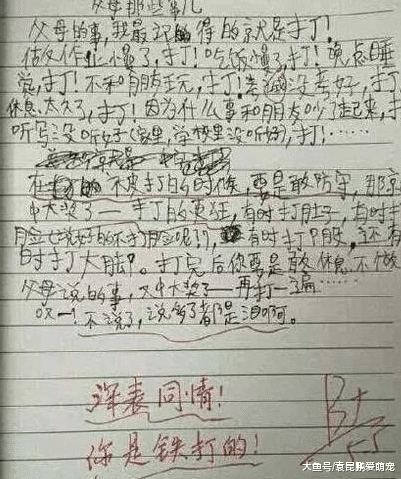 父母那些事儿
父母的事,我最记的得的就是打了!
做作业慢了,打!吃饭慢了,打!晚点睡
觉,打!不和朋友玩,打!考试没考好,打
休息太久了,打!因为什么事和朋友吵了起来,打
听写没听好(家里,学校里没听好),打!……
在被打的时候,要是敢防守,那
中大奖了——打的更狂,有时打肚子,有时打
脸(说好的不打脸呢!),有时打月殳,还有
时打大脑?。打完后你要是敢休息不做
父母说的事,又中大奖了——再打一遍……
哎!不说了,说多了都是泪啊。
深表同情!
你是铁打的!
B+
大鱼号/袁昆鹏爱萌宠